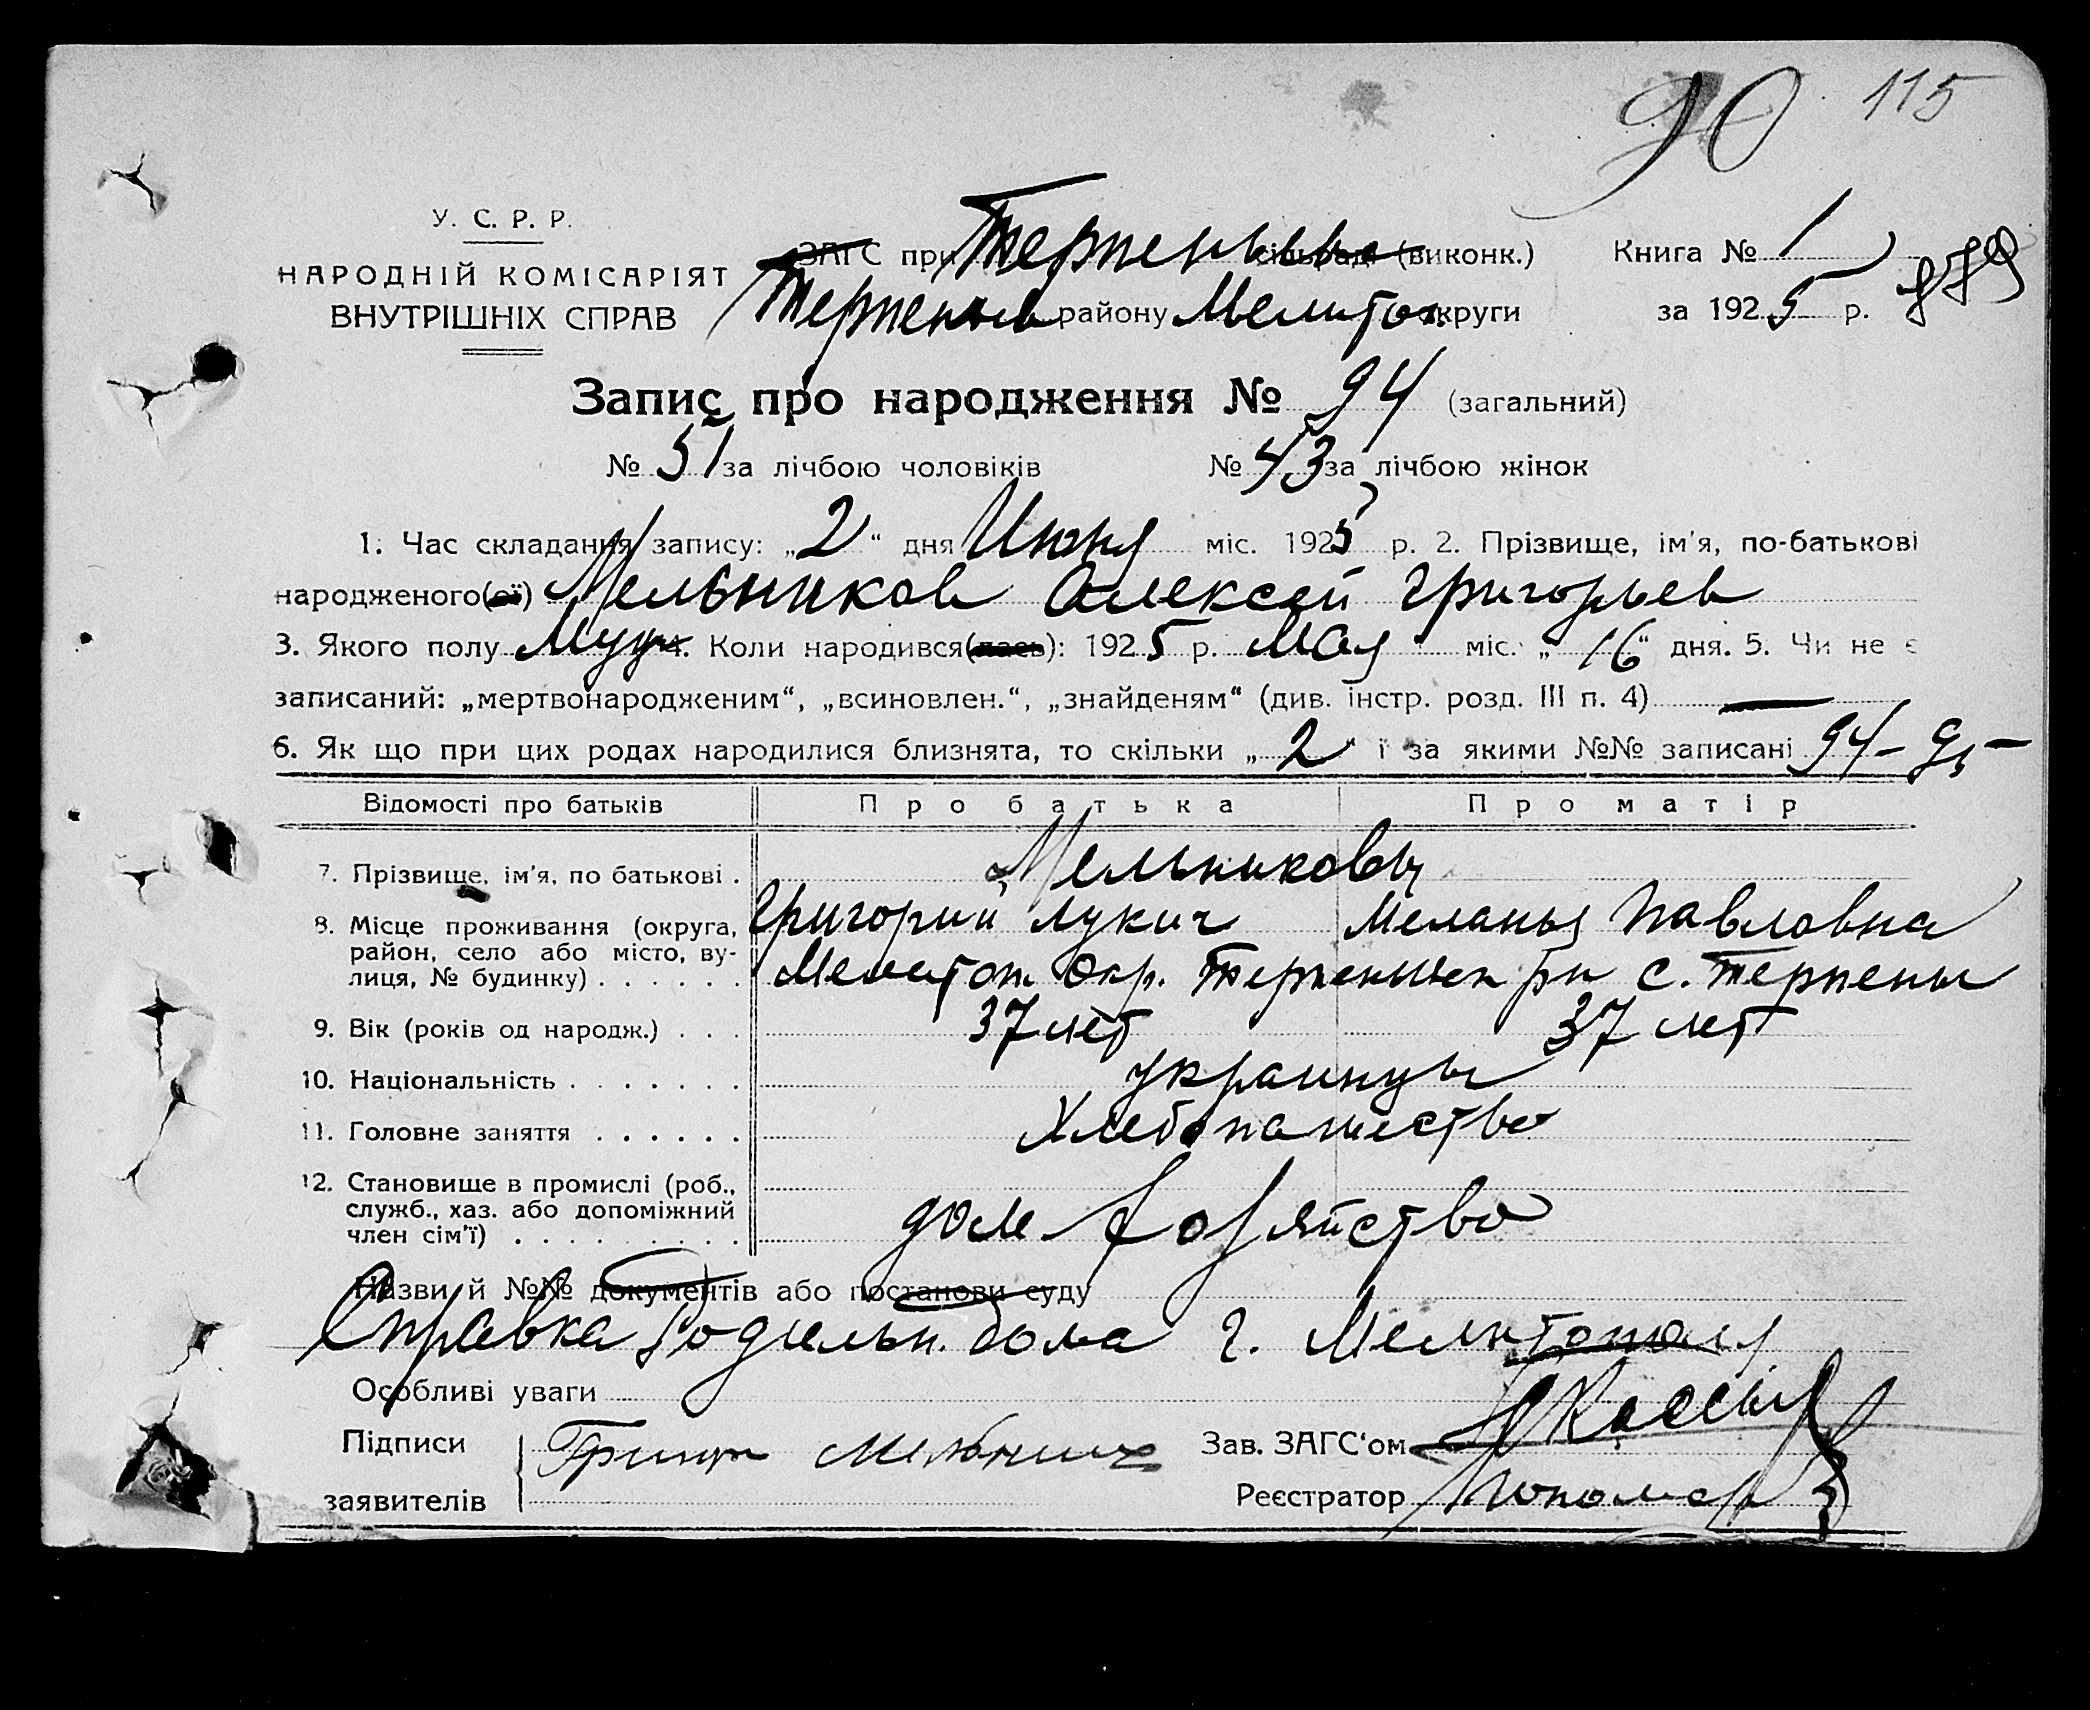 90 115
У. С. Р. Р.
НАРОДНІЙ КОМІСАРІЯТ
ВНУТРІШНІХ СПРАВ
ЗАГС при сільраді (виконк.)
районо Мелитоп округи
Книга № 1
за 1925 р.
879
Запис про народження № 94 (загальний)
№ 51 за лічбою чоловіків № 43 за лічбою жінок
1. Час складання запису: „2“ дня Июня міс. 1925 р. 2. Прізвище, ім'я, по-батькові
народженого(ої) Мельников Алексей Григорьев
3. Якого полу Муж 4. Коли народився(лась): 1925 р. Мая міс. „16“ дня. 5. Чи не є
записаний: „мертвонародженим“, „всиновлен.“, „знайденям“ (див. інстр. розд. III п. 4) —
6. Як що при цих родах народилися близнята, то скільки „2“ і за якими №№ записані 94-95-
Відомості про батьків Про батька Про матір
7. Прізвище, ім'я, по батькові . Мельниковы
Григорий Лукич Меланья Павловна
8. Місце проживання (округа,
район, село або місто, ву-
лиця, № будинку) . . . . . . Мелитоп. Окр. рн с. Терпенье
9. Вік (років од народж.) . . . 37 лет 37 лет
10. Національність . . . . . . . украинцы
11. Головне заняття . . . . . . Хлебопашество
12. Становище в промислі (роб.,
служб., хаз. або допоміжний
член сім'ї) . . . . . . . . . дом хозяйство
Назви й №№ документів або постанови суду
Справка Родильн. дома г. Мелитополя
Особливі уваги
Підписи
заявителів
Зав. ЗАГС'ом
Реєстратор